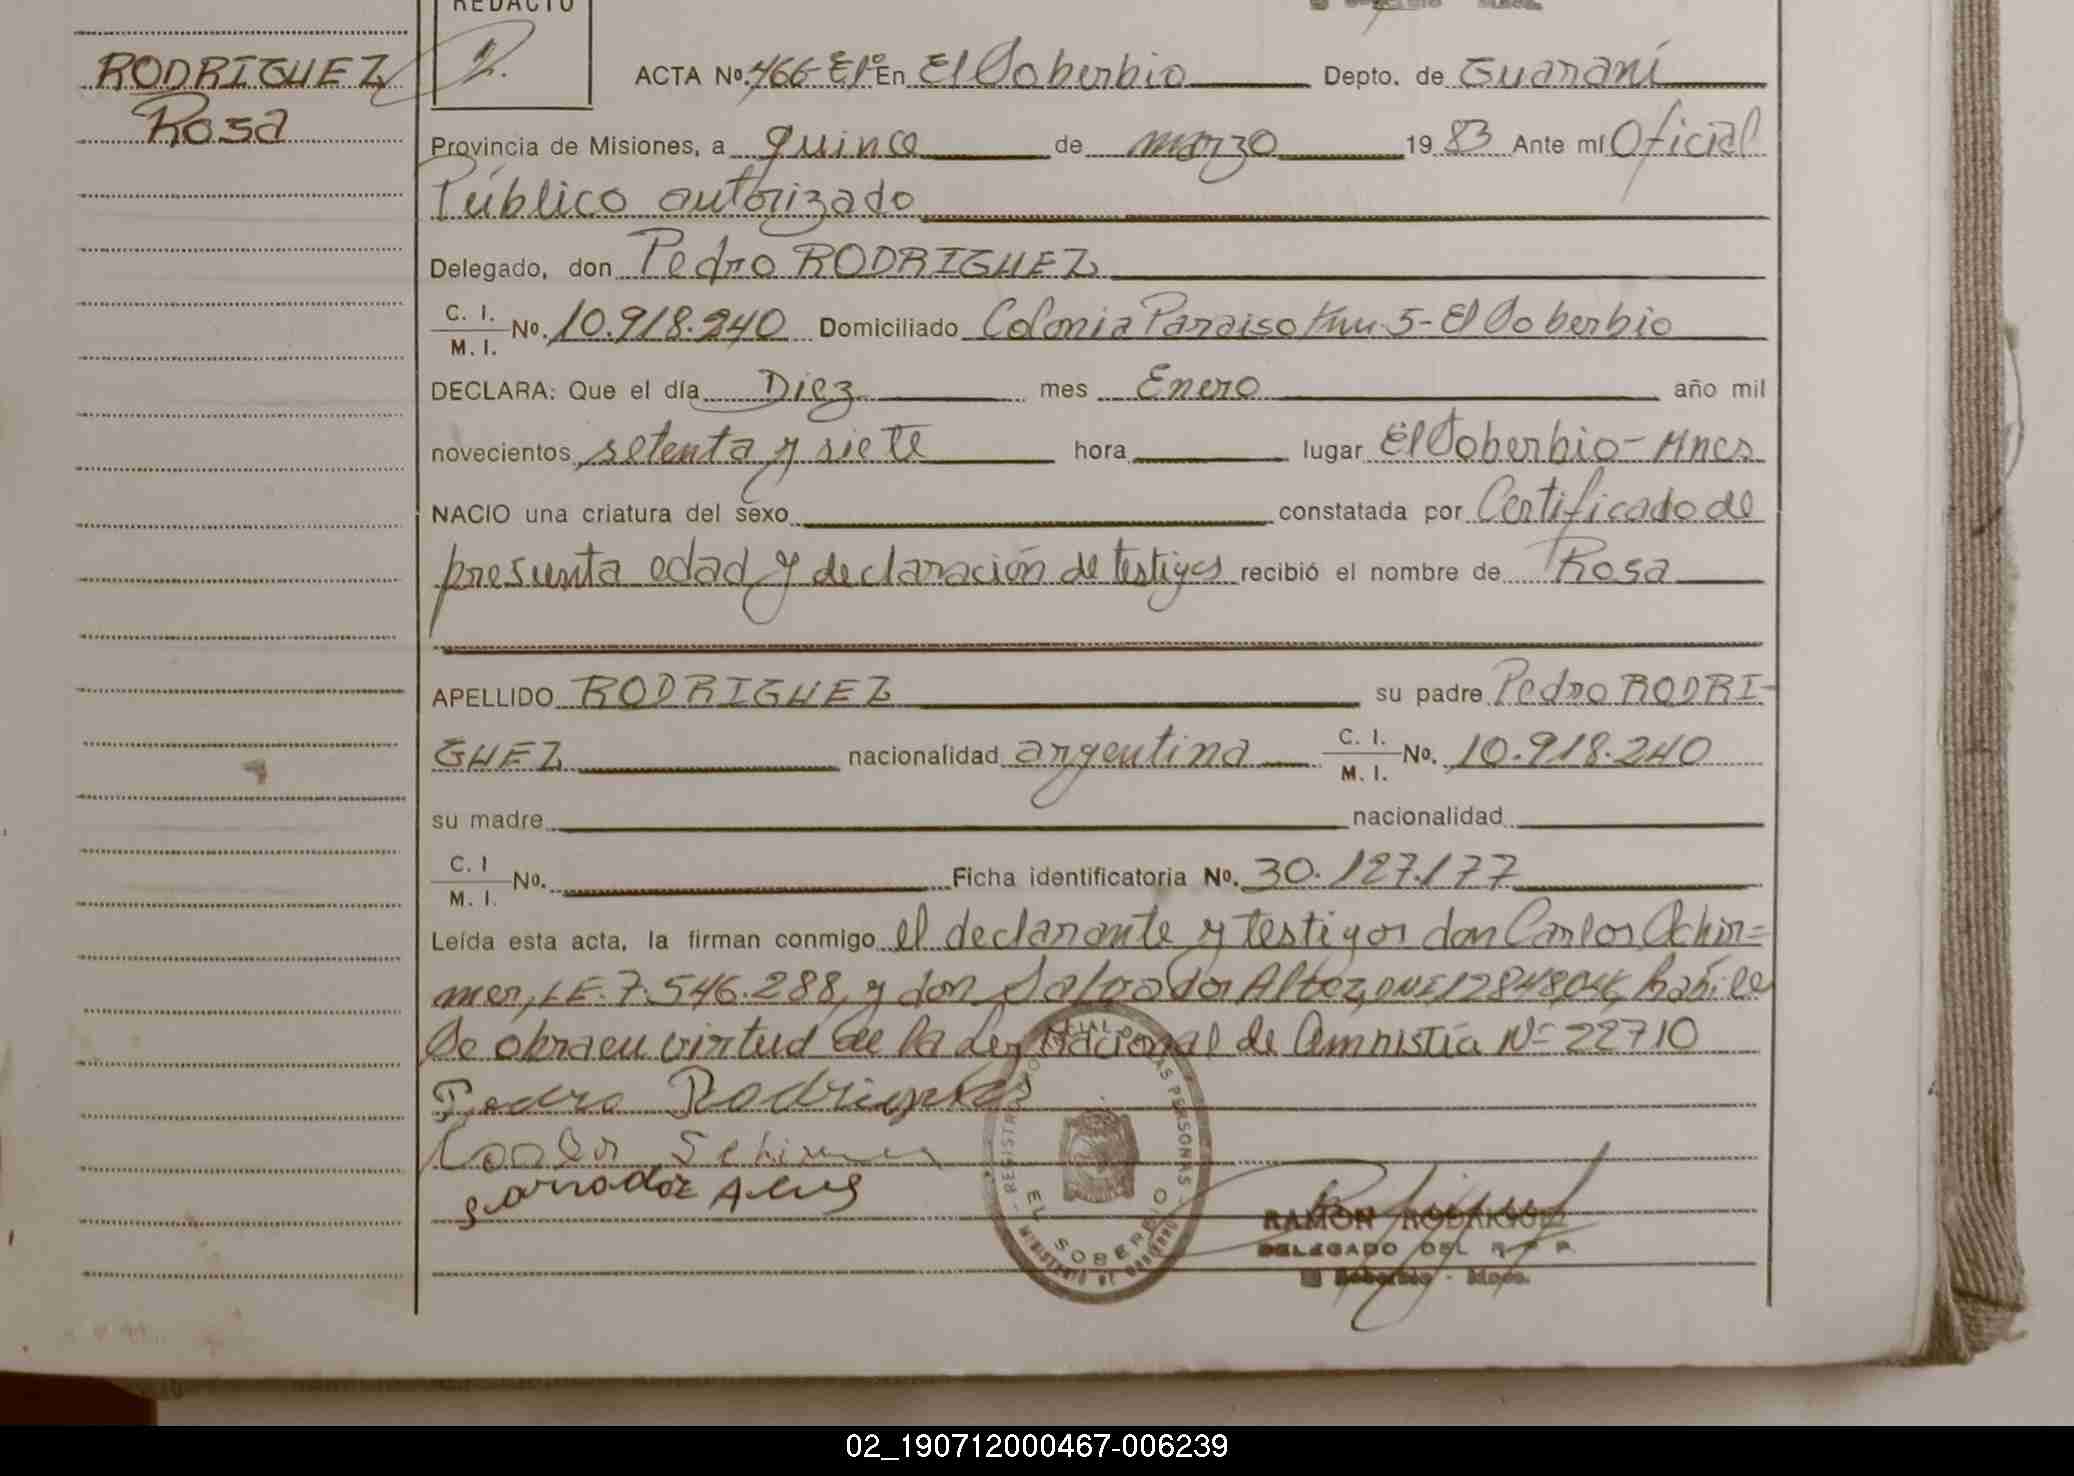 REDACTO
RODRIGUEZ
Rosa
ACTA Nº. 466-E1º En El Soberbio Depto. de Guaraní
Provincia de Misiones, a quince de marzo 19 83 Ante mí Oficial
Público autorizado
Delegado, don Pedro RODRIGUEZ
C. I.
M. I. Nº. 10.918.240 Domiciliado Colonia Paraiso Km 5- El Soberbio
DECLARA: Que el día Diez mes Enero año mil
novecientos setenta y siete hora lugar El Soberbio- Mnes
NACIO una criatura del sexo constatada por Certificado de
presunta edad y declaración de testigos recibió el nombre de Rosa
APELLIDO RODRIGUEZ su padre Pedro RODRI-
GUEZ nacionalidad argentina C. I.
M. I. Nº. 10.918.240
su madre nacionalidad
C. I
M. I. Nº. Ficha identificatoria Nº. 30.127.177
Leída esta acta, la firman conmigo el declarante y testigos don Carlos
LE. 7.546.288, y don Salvador DNI 12848046,
Se obra en virtud de la Ley Nacional de Amnistía Nº 22710
Pedro Rodriguez
Carlos
REGISTRO DE LAS PERSONAS
EL SOBERBIO
MINISTERIO DE GOBIERNO
RAMON RODRIGUEZ
DELEGADO DEL R P P.
El Soberbio - Mnes.
02_190712000467-006239